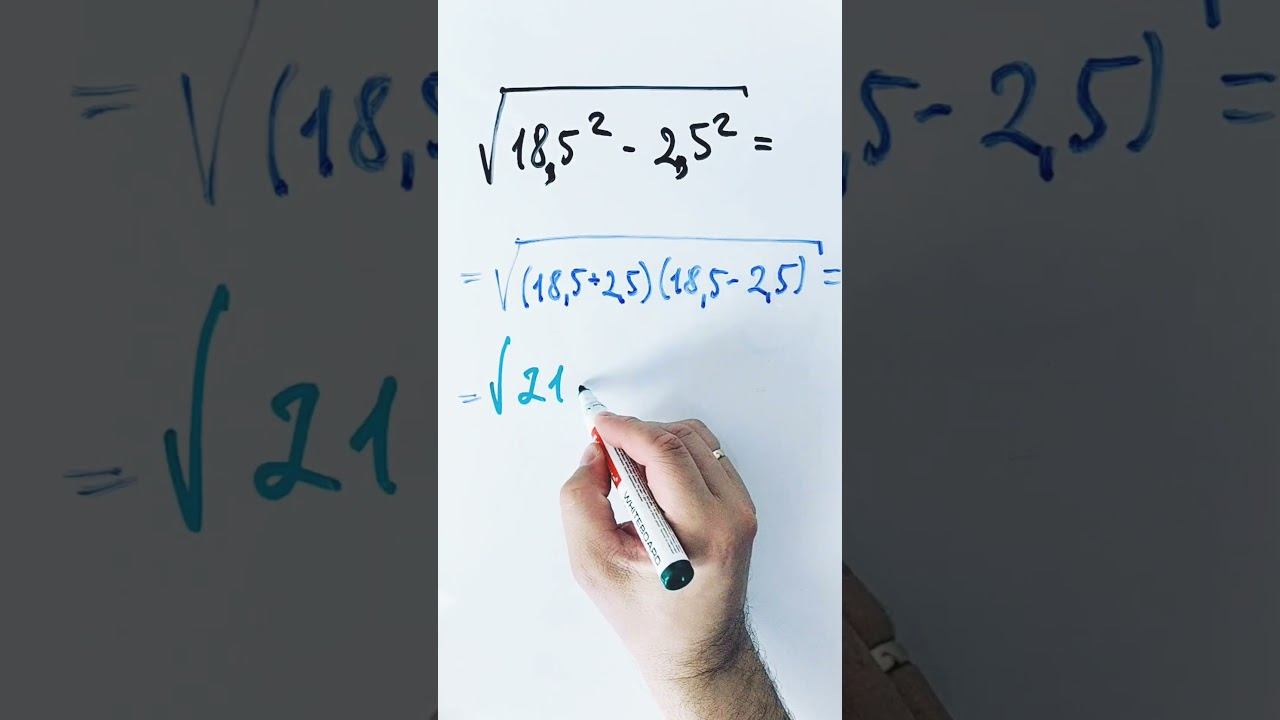 √18,5² - 2,5² =
= √(18,5+2,5)(18,5-2,5) =
= √21
WHITEBOARD